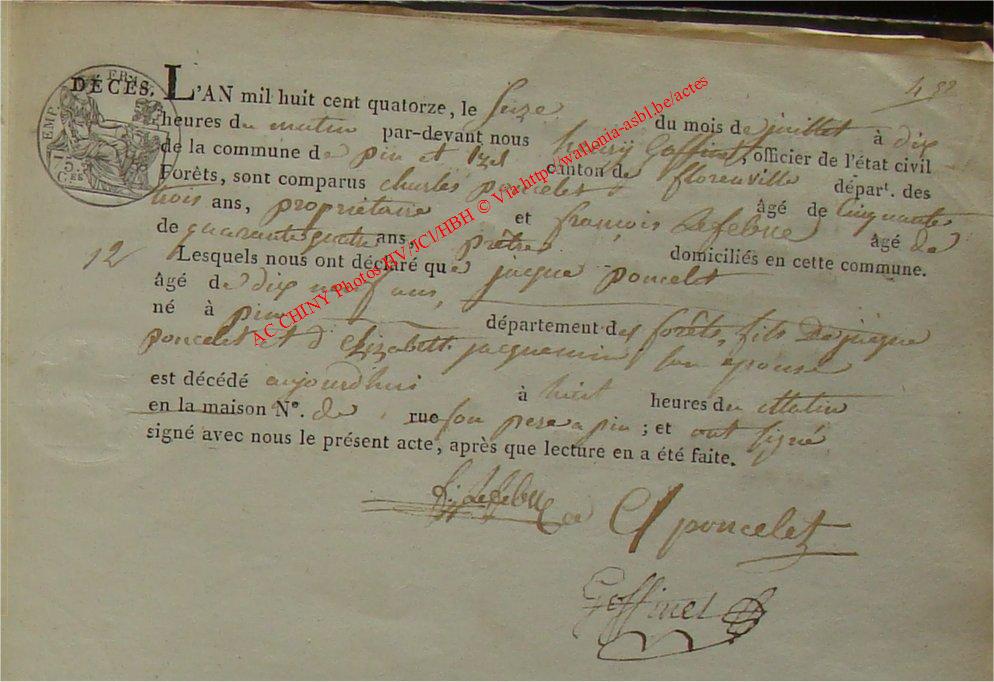 432
DÉCÈS. L'AN mil huit cent quatorze, le Seize du mois de juillet à dix
heures du matin par-devant nous henry Goffinet, officier de l'état civil
de la commune de pin et izel canton de florenville départ. des
Forêts, sont comparus charles poncelet âgé de Cinquante
trois ans, propriétaire et françois Lefebve âgé de
de quarante quatre ans, prêtre domiciliés en cette commune.
12
Lesquels nous ont déclaré que jaque poncelet
âgé de dix neuf ans,
né à pin département des forêts, fils De jaque
poncelet et d'Elizabett jacquemin son épouse
est décédé aujourdhui à huit heures du Matin
en la maison N°. de rue son pere a pin ; et ont signé
signé avec nous le présent acte, après que lecture en a été faite.
f. Lefebve Ch poncelet
Goffinet
EMP. FRAN.
75
CES
AC CHINY Photos HV/JCl/HBH © Via http://wallonia-asbl.be/actes